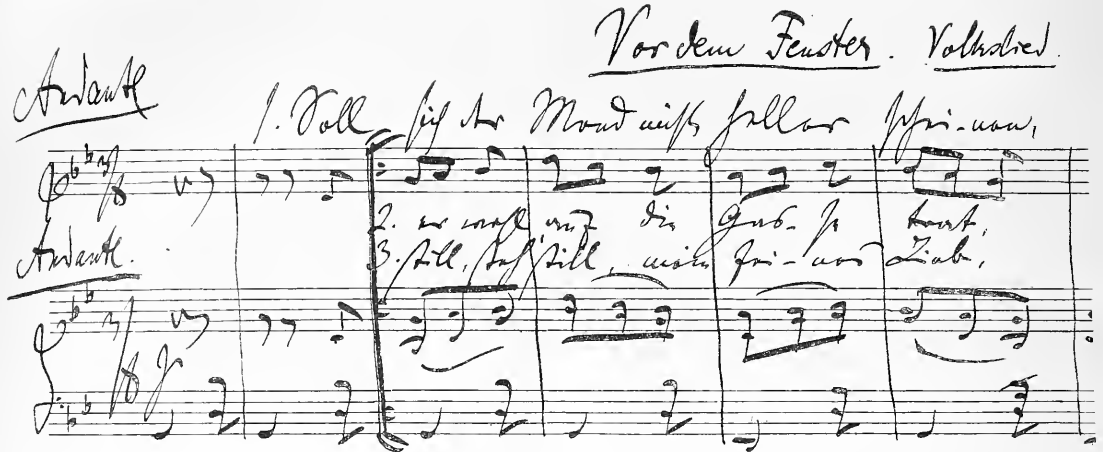 Vor dem Fenster. Volkslied.
Andante
1. Soll sich der Mond nicht heller schei-nen,
2. er wohl auf die Gas-se trat,
Andante.
3. still, steh still, mein fei-nes Lieb,